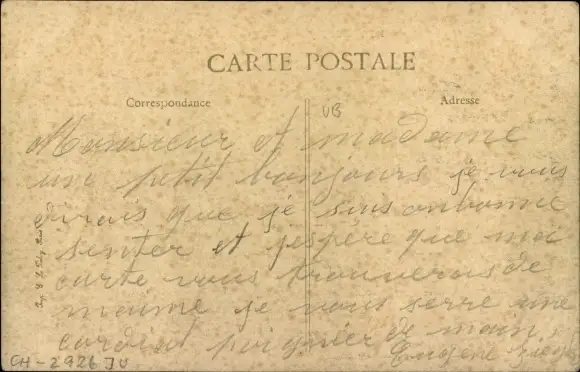 CARTE POSTALE
Correspondance
Adresse
VB
Monsieur et madame
un petit bonjours je vous
dirais que je suis onbonne
senter et j'espère que moi
carte vous trouverais de
maime je vous serre une
cordial poignier de main
Eugène
CH-2926 JU